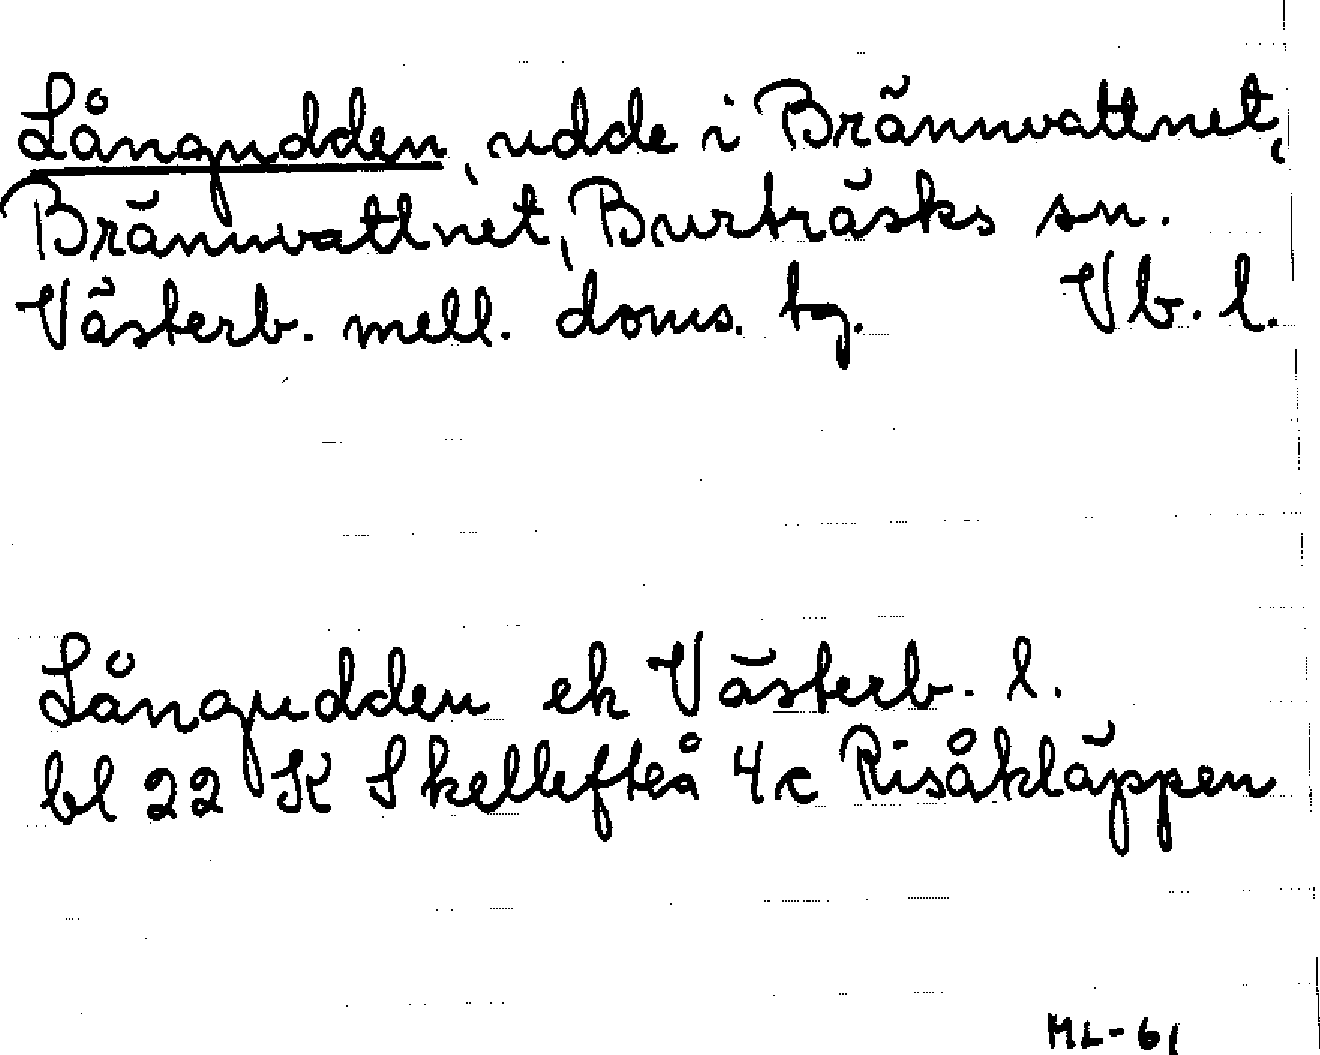 Långudden, udde i Brännvattnet,
Brännvattnet, Burträsks sn.
Västerb. mell. doms. tg. Vb. l.
Långudden ek Västerb. l.
bl 22 K Skellefteå 4c Risåkläppen
ML-61